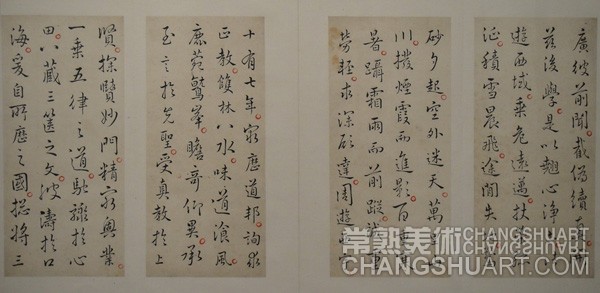 廣彼前聞截偽續
茲後學是以翹心淨
遊西域乘危遠邁杖
征積雪晨飛途間失
砂夕起空外迷天萬
川撥煙霞而進影百
暑躡霜雨而前蹤誠重
勞輕求深願達周遊
十有七年窮歷道邦詢求
正教雙林八水味道飡風
鹿苑鷲峯瞻奇仰異承
至言於先聖受真教於上
賢探賾妙門精窮奧業
一乘五律之道馳驟於心
田八藏三篋之文波濤於口
海爰自所歷之國總將三
常熟美術 CHANGSHUART
CHANGSHUART.COM